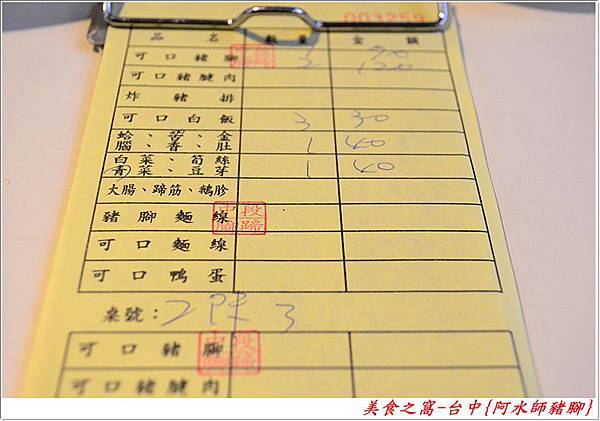 003259
品名 數量 金額
可口豬腳 2 120
可口豬腱肉
炸豬排
可口白飯 3 30
蛤、苦、金
腦、香、肚 1 40
白菜、筍絲
青菜、豆芽 1 40
大腸、蹄筋、鵝胗
豬腳麵線 中段 腳蹄
可口麵線
可口鴨蛋
桌號：
可口豬腳
可口豬腱肉
美食之窩-台中{阿水師豬腳}